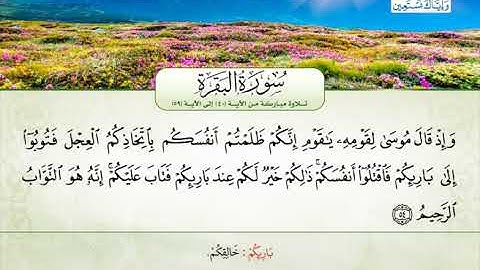 وَإِيَّاكَ نَسْتَعِينُ
سُورَةُ الْبَقَرَةِ
تلاوة مباركة من الآية (٤٠) إلى الآية (٥٩)
وَإِذْ قَالَ مُوسَىٰ لِقَوْمِهِۦ يَٰقَوْمِ إِنَّكُمْ ظَلَمْتُمْ أَنفُسَكُم بِاتِّخَاذِكُمُ الْعِجْلَ فَتُوبُوٓا۟
إِلَىٰ بَارِئِكُمْ فَاقْتُلُوٓا۟ أَنفُسَكُمْ ذَٰلِكُمْ خَيْرٌ لَّكُمْ عِندَ بَارِئِكُمْ فَتَابَ عَلَيْكُمْ ۚ إِنَّهُۥ هُوَ التَّوَّابُ
الرَّحِيمُ ٥٤
بَارِئِكُمْ : خَالِقِكُمْ.